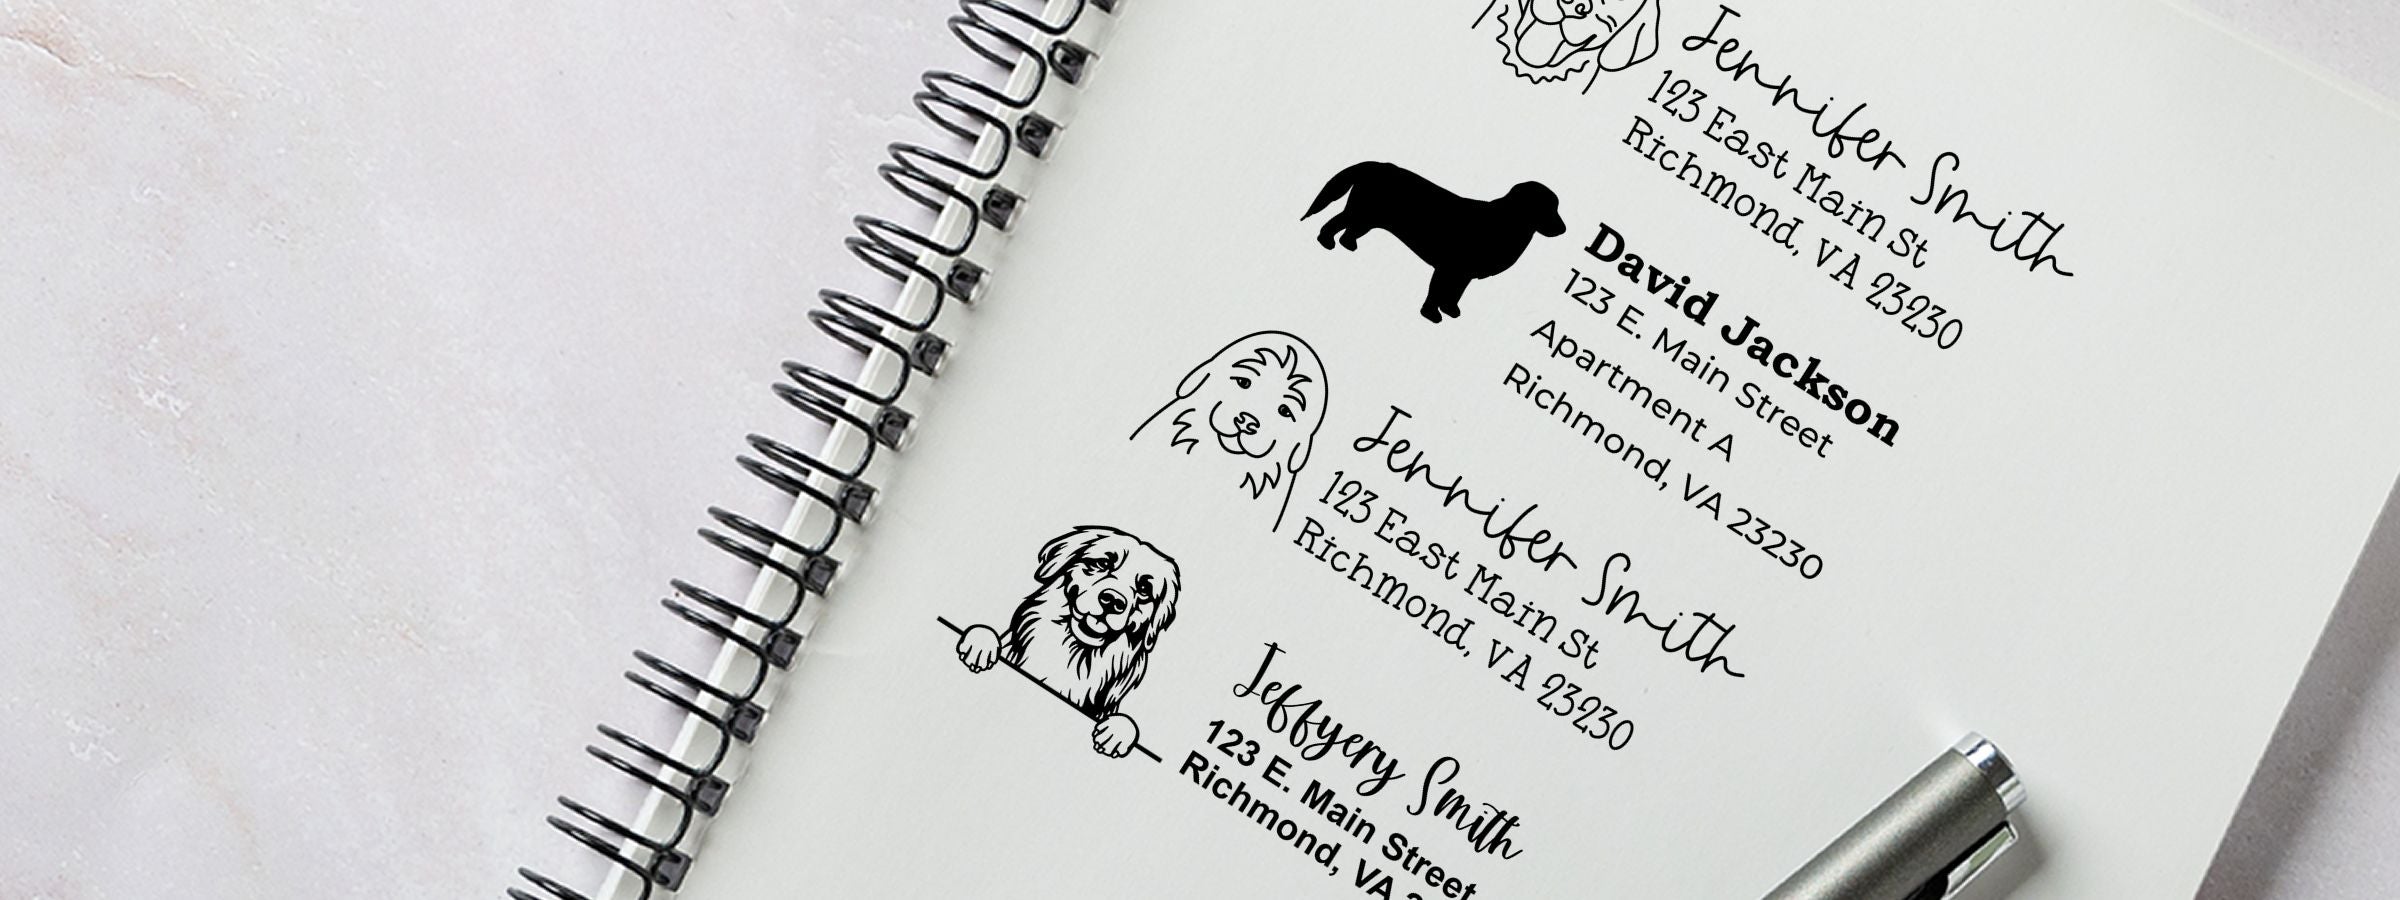 Jennifer Smith
123 East Main St
Richmond, VA 23230
David Jackson
123 E. Main Street
Apartment A
Richmond, VA 23230
Jennifer Smith
123 East Main St
Richmond, VA 23230
Jeffyery Smith
123 E. Main Street
Richmond, VA